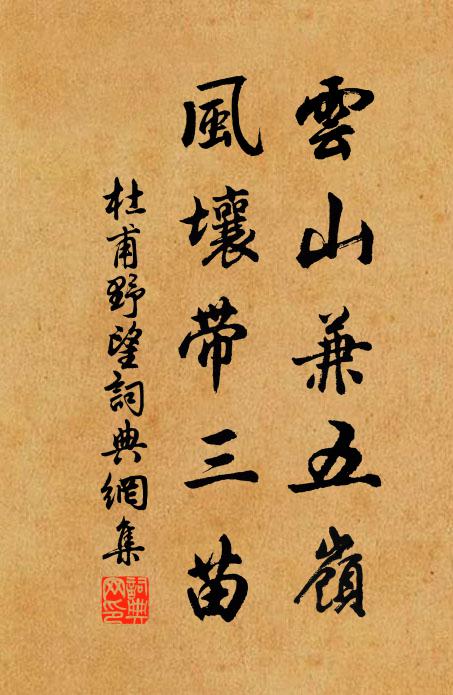 雲山兼五嶺
風壤帶三苗
杜甫野望詞典網集
詞典網印